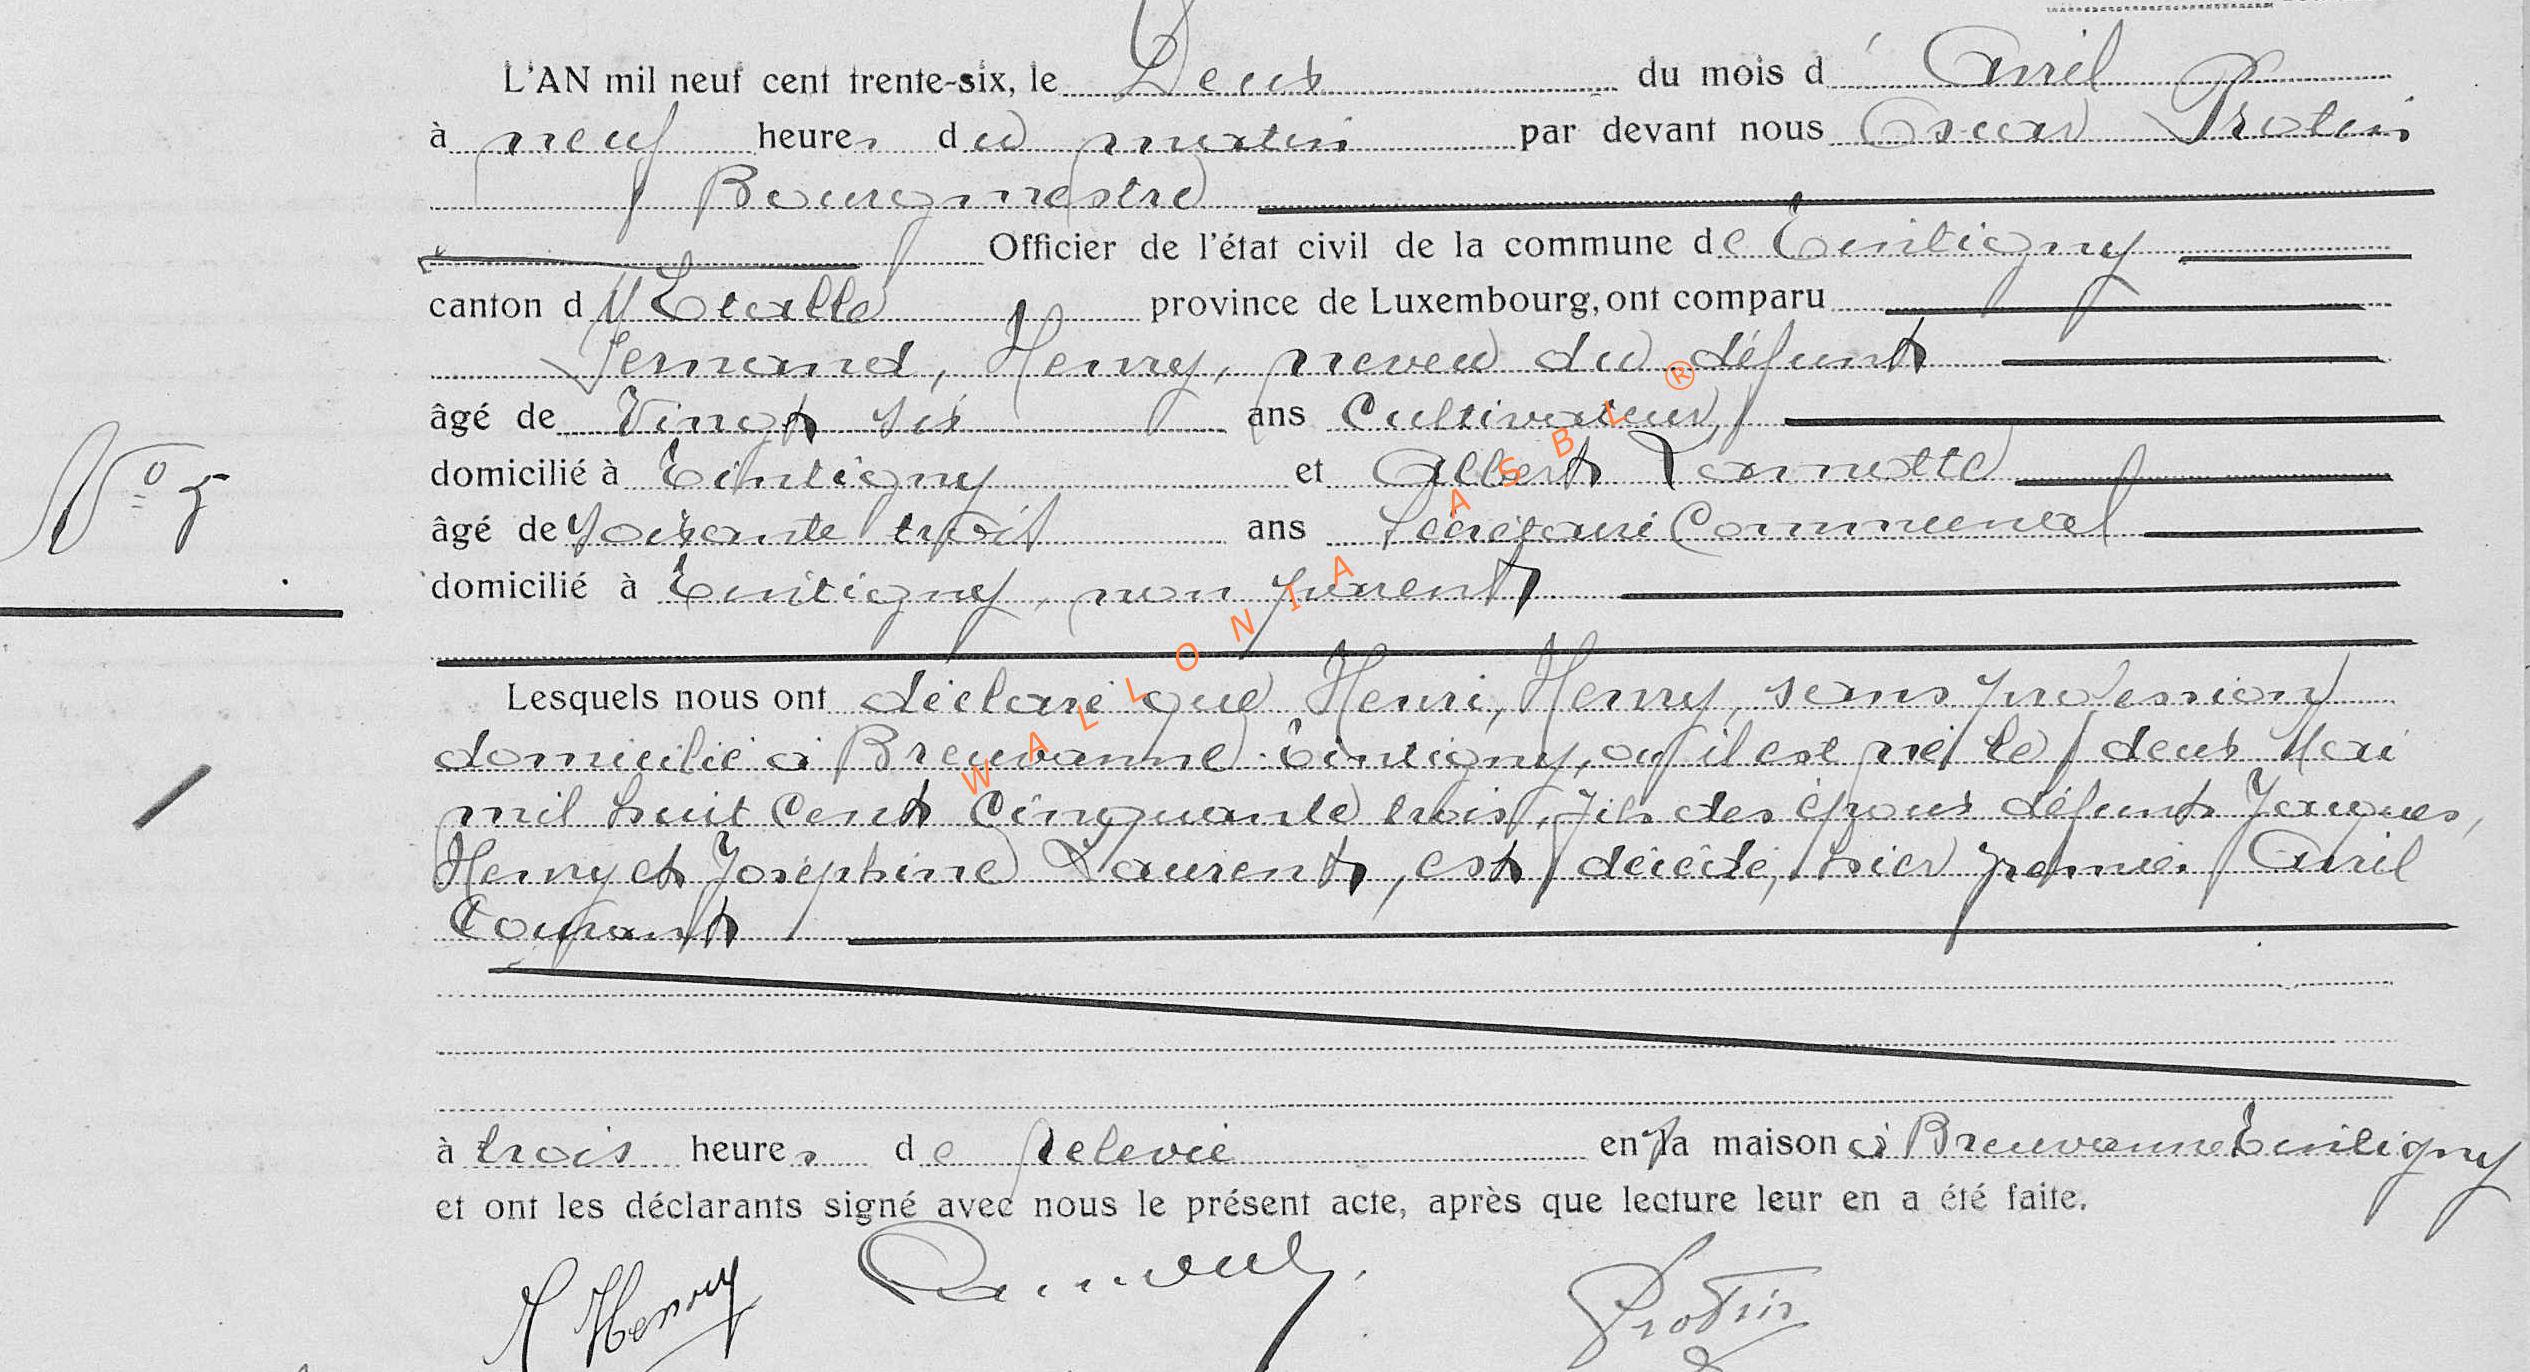 L'AN mil neuf cent trente-six, le Deux du mois d' Avril
à neuf heures du matin par devant nous Oscar Protin
Bourgmestre
Officier de l'état civil de la commune de Tintigny
canton d'Etalle province de Luxembourg, ont comparu
Fernand, Henry, neveu du défunt
âgé de Vingt six ans Cultivateur,
domicilié à Tintigny et Albert Lannotte
N° 5
âgé de soixante trois ans Secrétaire Communal
domicilié à Tintigny, non parent
Lesquels nous ont déclaré que Henri, Henry, sans profession
domicilié à Breuvanne-Tintigny, où il est né le deux Mai
mil huit Cent Cinquante trois, fils des époux défunts Jacques,
Henry et Joséphine Laurent, est décédé, hier premier Avril
Courant
à trois heures de relevée en sa maison à Breuvanne Tintigny
et ont les déclarants signé avec nous le présent acte, après que lecture leur en a été faite.
Henry Protin
WALLONIA ASBL ®